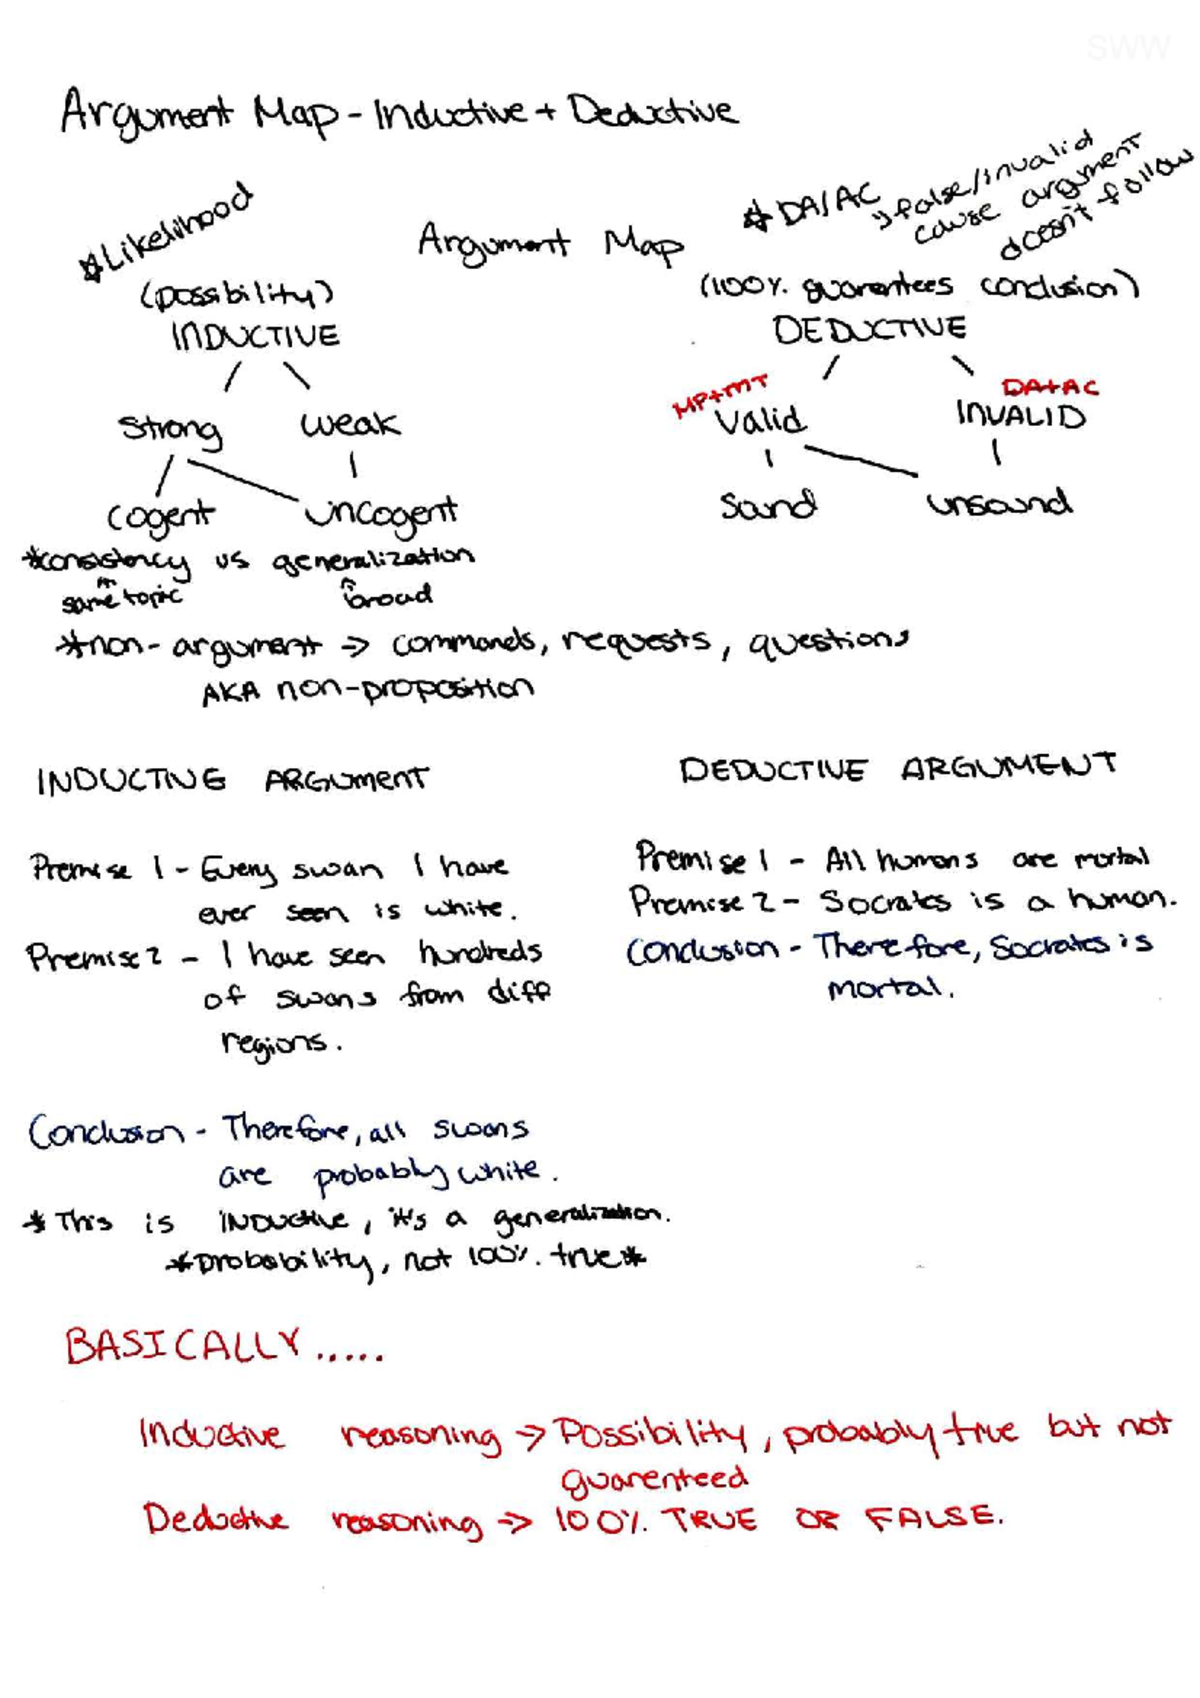 SWW
Argument Map - Inductive + Deductive
*Likelihood
Argument Map
*DA/AC
→false/invalid
cause argument
doesn't follow
(possibility)
INDUCTIVE
(100% guarentees conclusion)
DEDUCTIVE
Strong weak
MP+MT
Valid
DA+AC
INVALID
Cogent uncogent
Sound unsound
*consistency vs generalization
same topic broad
*non-argument → commands, requests, questions
AKA non-proposition
INDUCTIVE ARGUMENT
Premise 1 - Every swan I have
ever seen is white.
Premise 2 - I have seen hundreds
of swans from diff
regions.
Conclusion - Therefore, all swans
are probably white.
*This is INDUCTIVE, it's a generalization.
*probability, not 100% true*
DEDUCTIVE ARGUMENT
Premise 1 - All humans are mortal
Premise 2 - Socrates is a human.
Conclusion - Therefore, Socrates is
mortal.
BASICALLY.....
Inductive reasoning → Possibility, probably true but not
guarenteed
Deductive reasoning → 100% TRUE OR FALSE.